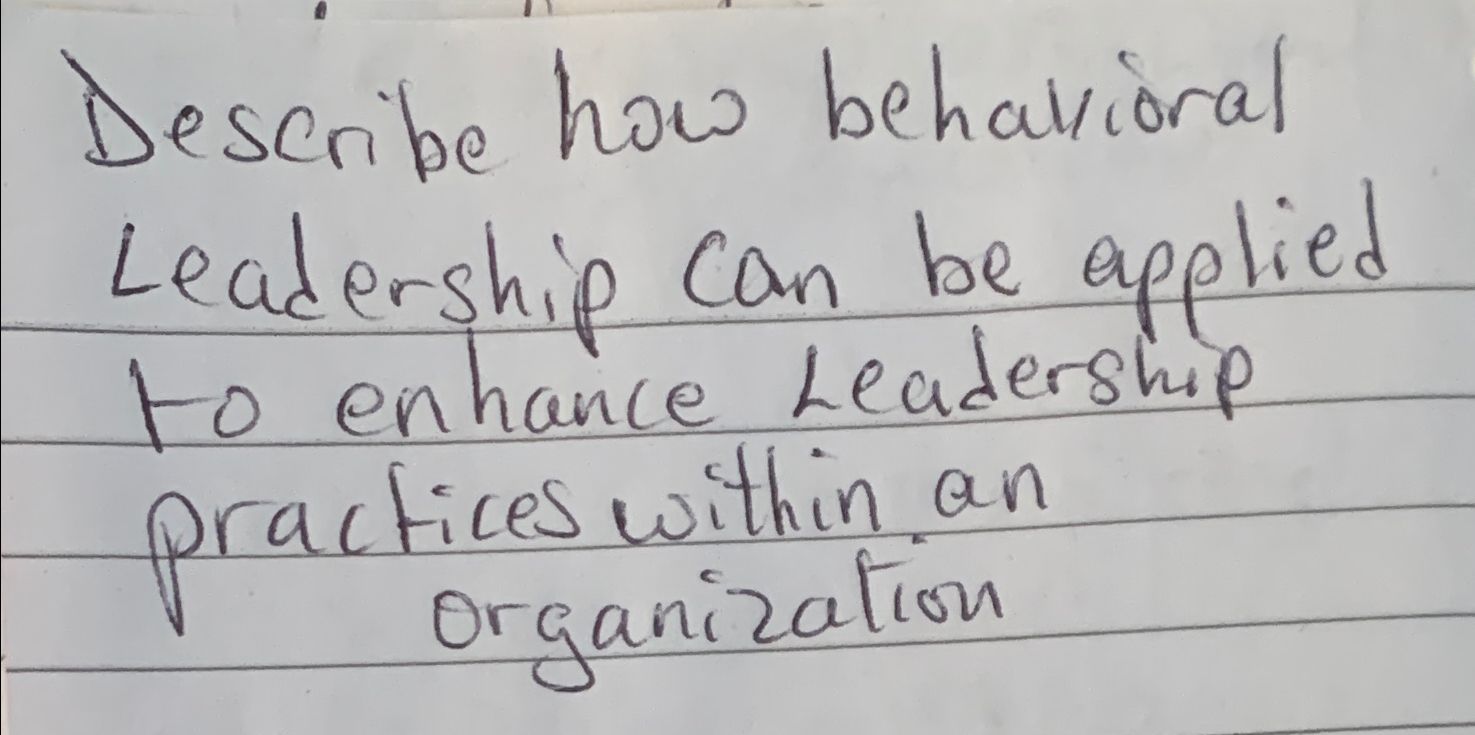 Describe how behavioral
Leadership can be applied
to enhance Leadership
practices within an
organization